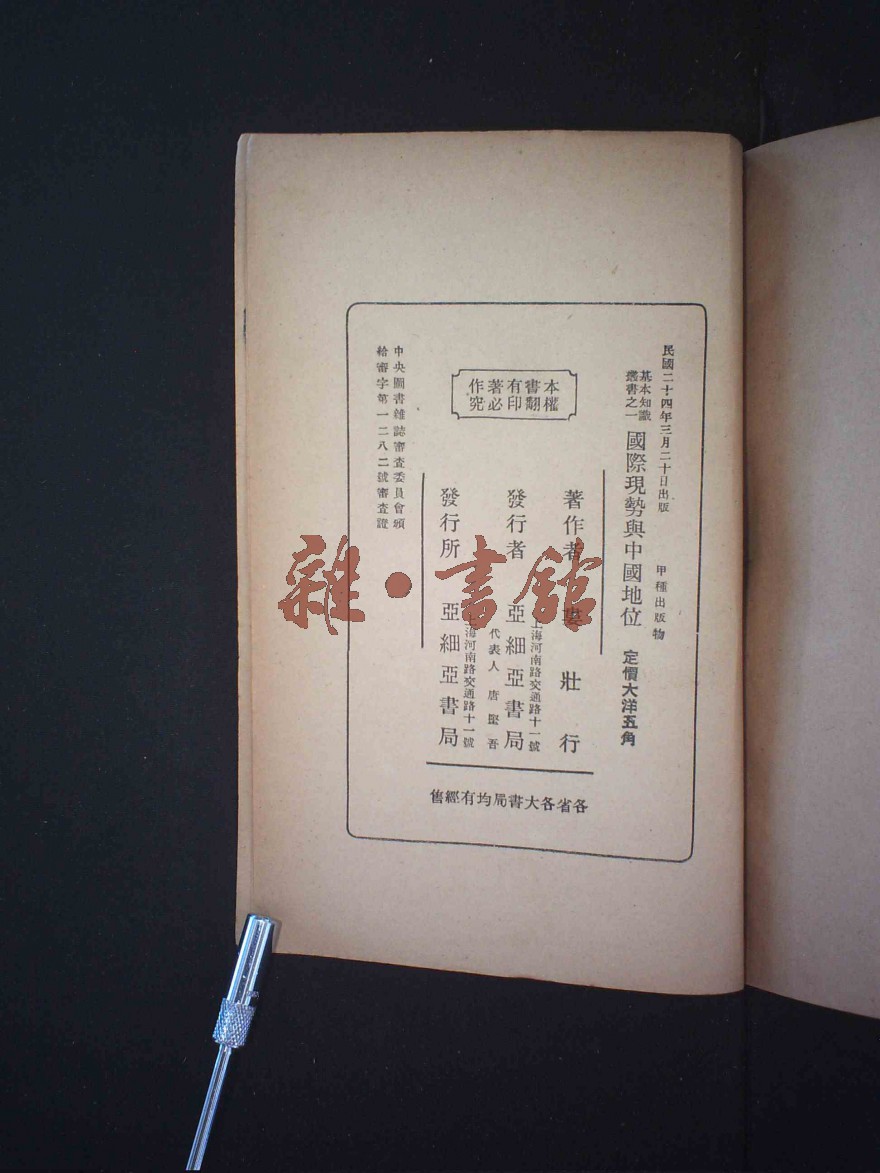 民國二十四年三月二十日出版
甲種出版物
基本知識
叢書之一
國際現勢與中國地位
定價大洋五角
著作者 婁壯行
發行者 亞細亞書局
上海河南路交通路十一號
代表人 唐堅吾
發行所 亞細亞書局
上海河南路交通路十一號
本書有著作
權翻印必究
中央圖書雜誌審查委員會頒
給審字第一二八二號審查證
各省各大書局均有經售
雜·書館